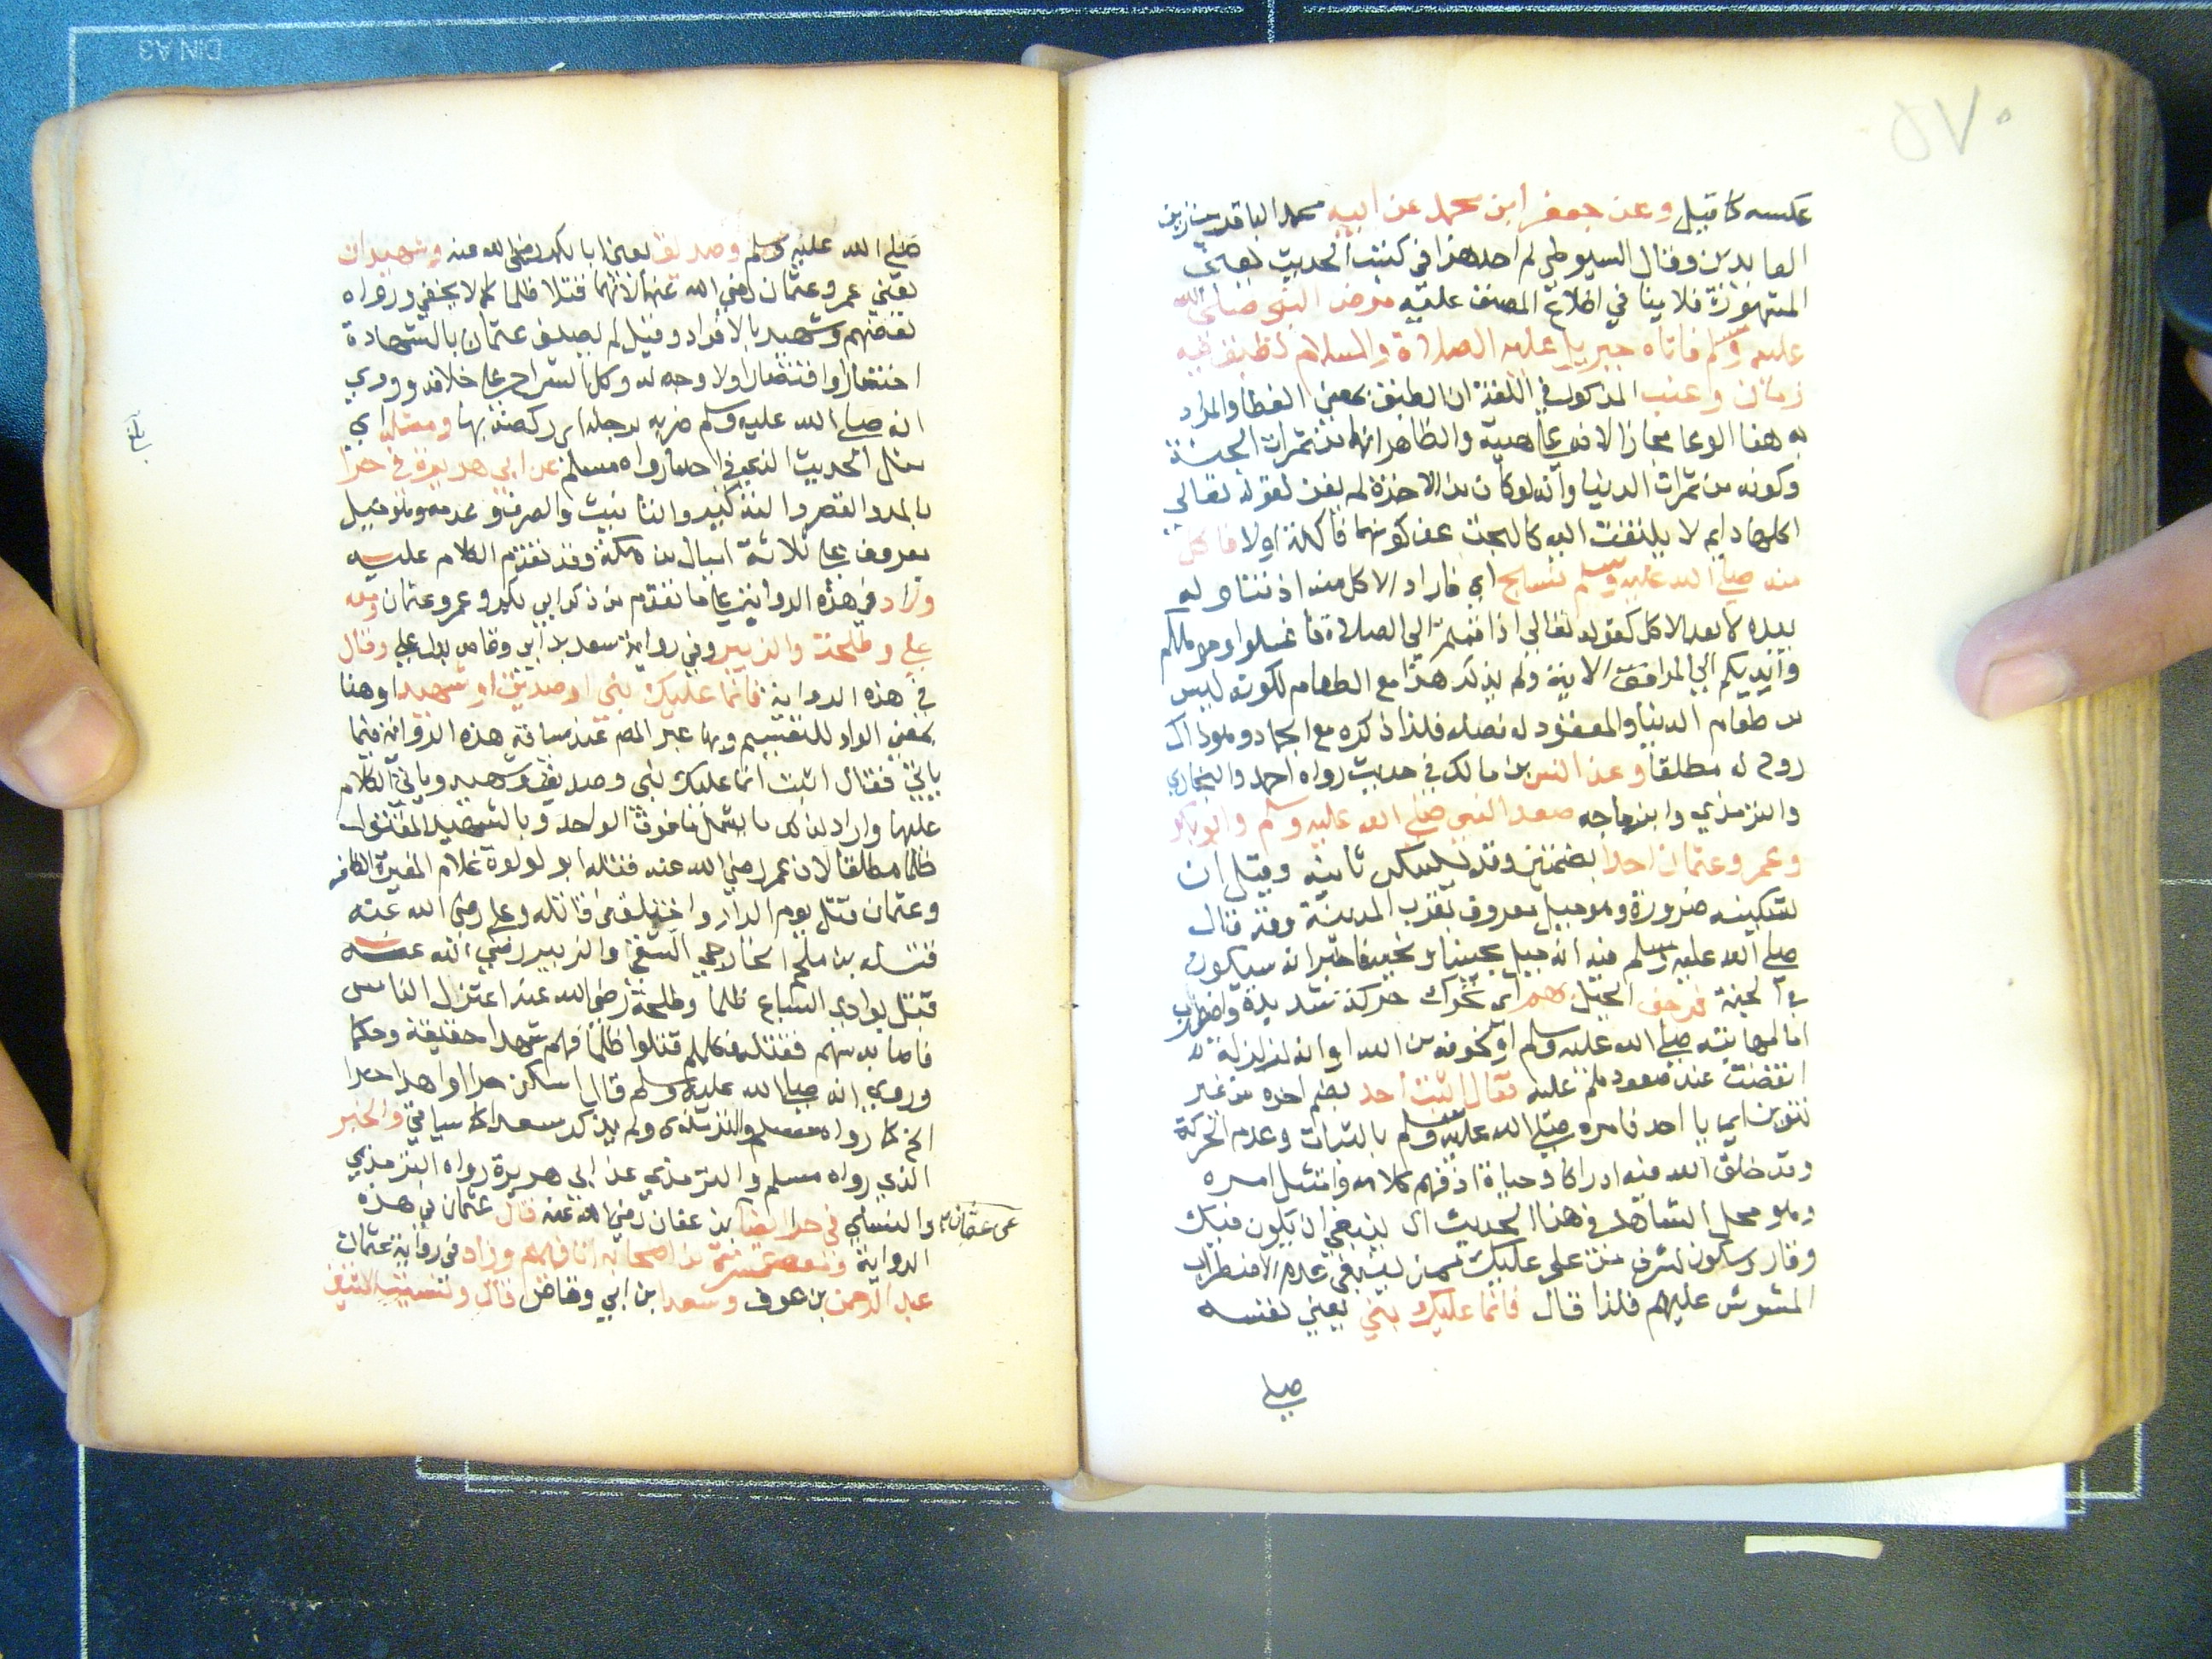 ٥٧٠
عكسه كما قيل وعن جعفر ابن محمد عن ابيه محمد الباقر بن زين
العابدين وقال السيوطي لم اجد هذا في كتب الحديث يعني
المشهورة فلا ينافي اطلاع المصنف عليه مرض النبي صلى الله
عليه وسلم فاتاه جبريل عليه الصلاة والسلام بطبق فيه
رمان وعنب المذكور في اللغة ان الطبق بمعنى الغطا والمراد
به هنا الوعا مجازا لانه على هيئته والظاهر انه من ثمرات الجنة
وكونه من ثمرات الدنيا وانه لو كان من الاخرة لم يفن لقوله تعالى
اكلها دايم لا يلتفت اليه كالبحث عن كونهما فاكهة اولا فاكل
منه صلى الله عليه وسلم فسبح اي فاراد الاكل منه اذ تناوله
بيده لا بعد الاكل كقوله تعالى اذا قمتم الى الصلاة فاغسلوا وجوهكم
وايديكم الى المرافق الاية ولم يذكر هذا مع الطعام لكونه ليس
من طعام الدنيا والمعقود له فصله فلذا ذكره مع الجماد وهو ما لا
روح له مطلقا وعن انس بن مالك في حديث رواه احمد والبخاري
والترمذي وابن ماجه صعد النبي صلى الله عليه وسلم وابو بكر
وعمر وعثمان احدا بضمتين وقد تسكن ثانيه وقيل ان
تسكينه ضرورة وهو جبل معروف بقرب المدينة وقد قال
صلى الله عليه وسلم فيه انه جبل يحبنا ونحبه فاخبر انه سيكون
في الجنة فرجف الجبل بهم اي تحرك حركة شديدة واضطرب
اما لمهابته صلى الله عليه وسلم او لخوفه من الله او انه لزلزلة
اتفقت عند صعودهم عليه فقال اثبت احد بضم اخره من غير
تنوين اي يا احد فامره صلى الله عليه وسلم بالثبات وعدم الحركة
وقد خلق الله فيه ادراكا وحياة اذ فهم كلامه وامتثل امره
وهو محل الشاهد في هذا الحديث اي ينبغي ان يكون فيك
وقار وسكون لشرف من على عليك فينبغي عدم الاضطراب
المشوش عليهم فلذا قال فانما عليك نبي يعني نفسه
صلى
صلى الله عليه وسلم وصديق يعني ابا بكر رضي الله عنه وشهيدان
يعني عمر وعثمان رضي الله عنهما لانهما قتلا ظلما كما لا يخفى ورواه
بعضهم وشهيد بالافراد وقيل لم يصف عثمان بالشهادة
اختصارا واقتصارا ولا وجه له وكل الشراح على خلافه وروي
انه صلى الله عليه وسلم ضربه برجله اي ركضه بها ومثله اي
مثل الحديث الذي في احد رواه مسلم عن ابي هريرة في حرا
بالمد والقصر والتذكير والتانيث والصرف وعدمه وهو جبل
معروف على ثلاثة اميال من مكة وقد تقدم الكلام عليه
وزاد في هذه الرواية على ما تقدم من ذكر ابي بكر وعمر وعثمان ومعه
علي وطلحة والزبير وفي رواية سعد بن ابي وقاص بدل علي وقال
في هذه الرواية فانما عليك نبي او صديق او شهيد او هنا
بمعنى الواو للتقسيم وبها عبر المص عند سياقه هذه الرواية فيما
ياتي فقال اثبت انما عليك نبي وصديق وشهيد وياتي الكلام
عليها واراد بذلك ما يشمل ما فوق الواحد وبالشهيد المقتول
ظلما مطلقا لان عمر رضي الله عنه قتله ابو لولوة غلام المغيرة الكافر
وعثمان قتل يوم الدار واختلف في قاتله وعلي رضي الله عنه
قتله بن ملجم الخارجي الشقي والزبير رضي الله عنه
قتل بوادي السباع ظلما وطلحة رضي الله عنه اعتزل الناس
فاصابه سهم فقتله فكلهم قتلوا ظلما فهم شهدا حقيقة وحكما
وروي انه صلى الله عليه وسلم قال اسكن حرا او اهدا حرا
الخ كما رواه مسلم والترمذي ولم يذكر سعدا كما سياتي والخبر
الذي رواه مسلم والترمذي عن ابي هريرة رواه الترمذي
والنسائي في حرا ايضا بن عفان رضي الله عنه قال عثمان في هذه
عن عثمان
الرواية ومعه عشرة من اصحابه انا فيهم وزاد في رواية عثمان
عبد الرحمن بن عوف وسعدا ابن ابي وقاص قال ونسيت الاثنين